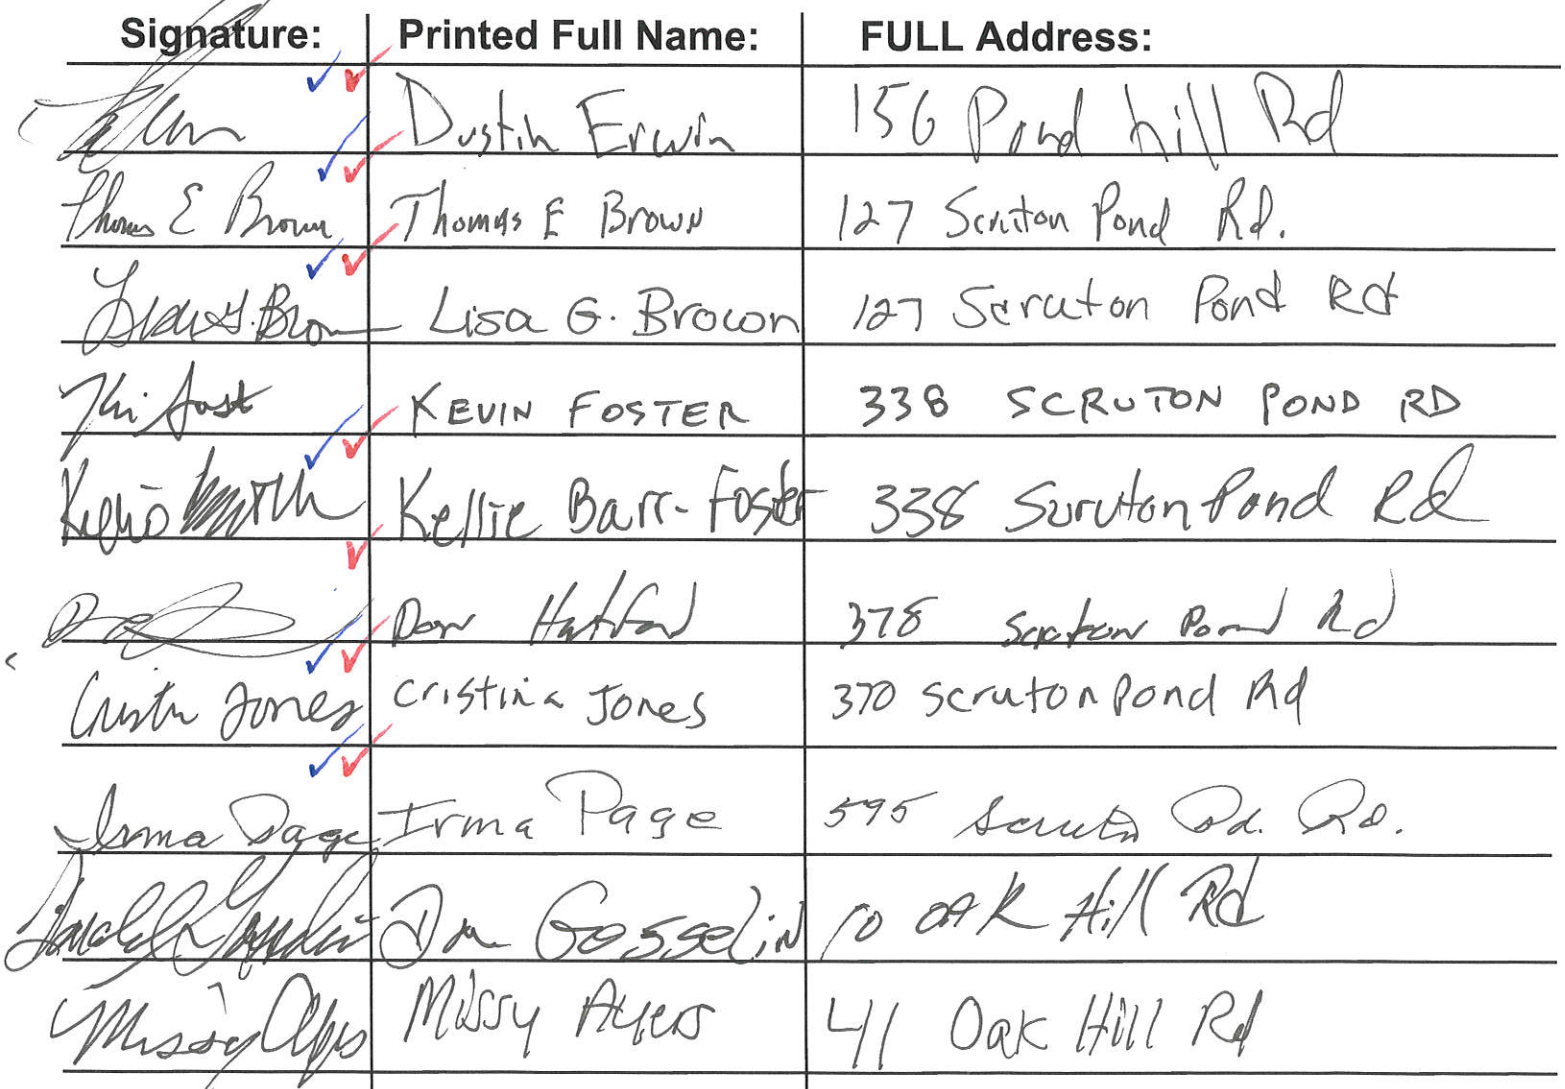 Signature: Printed Full Name: FULL Address:
Dustin Erwin 156 Pond hill Rd
Thomas E Brown Thomas E Brown 127 Scruton Pond Rd.
Lisa G. Brown Lisa G. Brown 127 Scruton Pond Rd
KEVIN FOSTER 338 SCRUTON POND RD
Kellie Kellie Barr-Foster 338 Scruton Pond Rd
Don 378 Scruton Pond Rd
Cristina Jones Cristina Jones 370 Scruton Pond Rd
Irma Page Irma Page 595 Scruton Pd. Rd.
Don Gosselin 10 OAK Hill Rd
Missy Ayers Missy Ayers 41 Oak Hill Rd